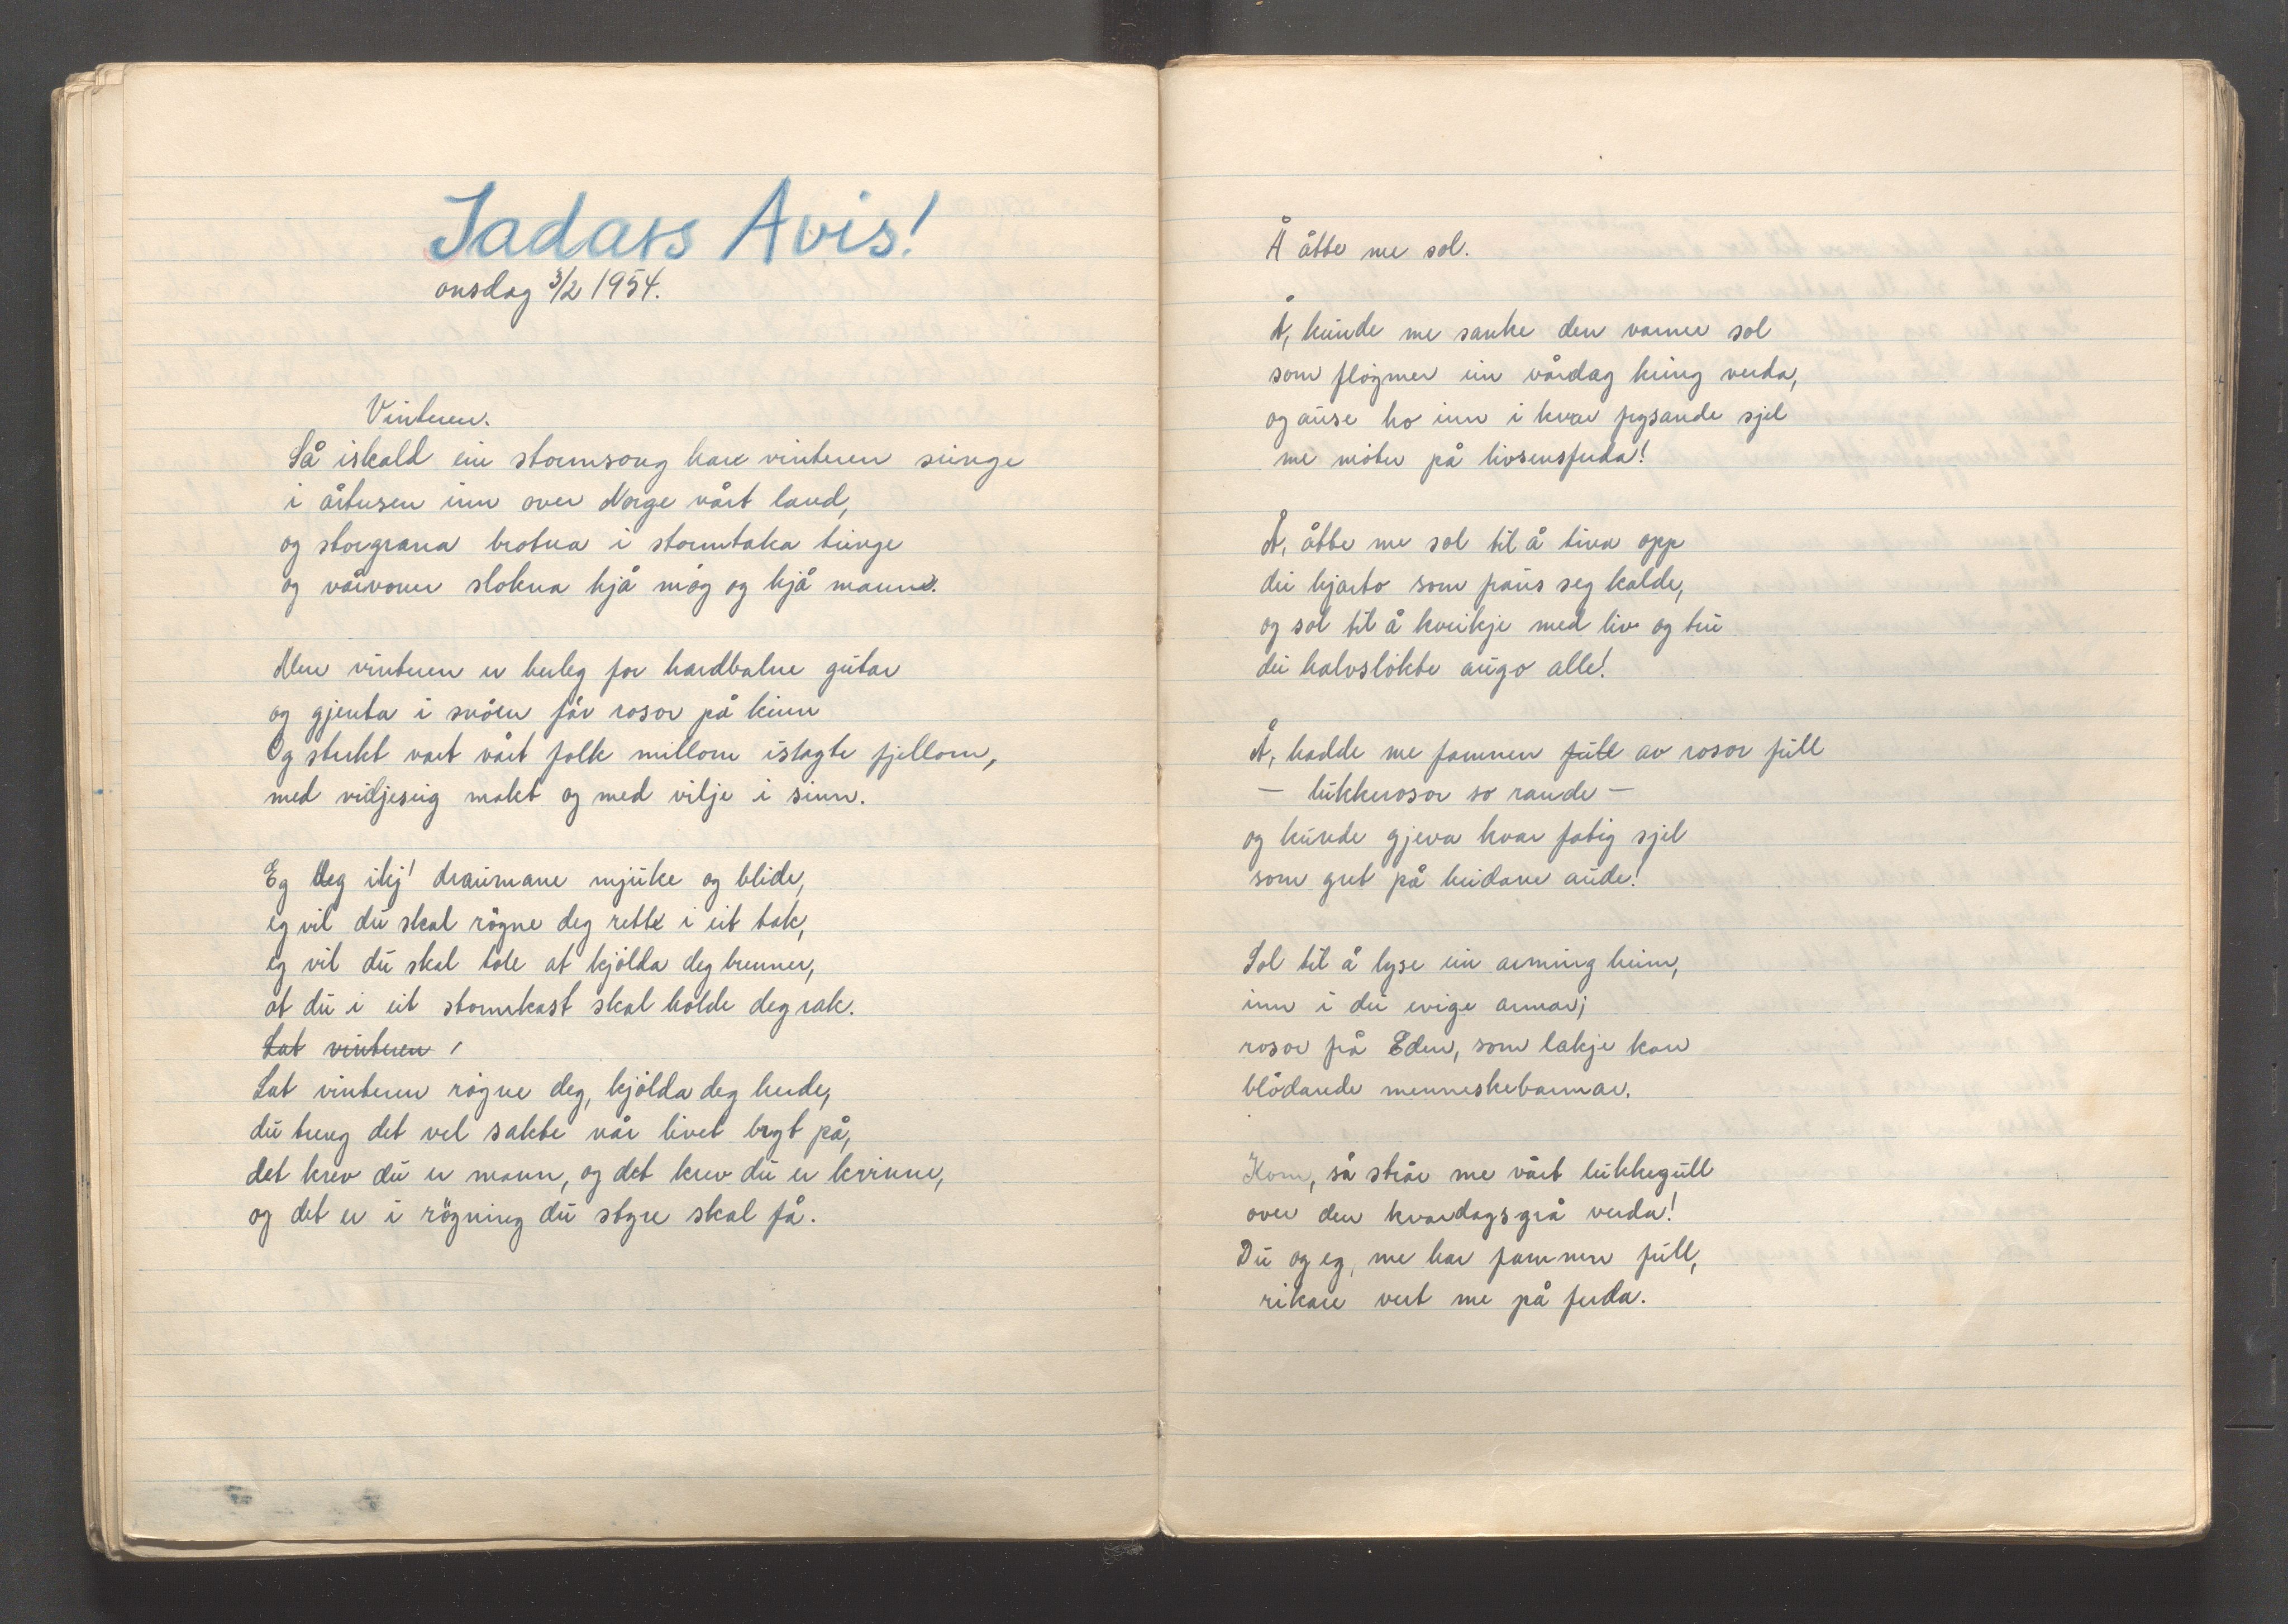 Jadars Avis!
onsdag 3/2 1954.
Vinteren.
Så iskald ein stormsong har vinteren sunge
i årtusen inn over Norge vårt land,
og storgrana brotna i stormtaka tunge
og vårvoner slokna hjå møy og hjå mann.
Men vinteren er herleg for hardbalne gutar
og gjenta i snöen får rosor på kinn
Og sterkt vart vårt folk millom islagte fjellom,
med viljeseig makt og med vilje i sinn.
Eg deg ikj' draumane mjuke og blide,
eg vil du skal røyne deg rett i eit tak,
eg vil du skal tole at kjölda deg brenner,
at du i eit stormkast skal holde deg rak.
Lat vinteren
Lat vinteren røyne deg, kjölda deg herde,
du treng det vel sakte når livet bryt på,
det krev du er mann, og det krev du er kvinne,
og det er i röyning du styre skal få.
Å åtte me sol.
Å, kunde me sanke den varme sol
som fløymer ein vårdag kring verda,
og ause ho inn i kvar frysande sjel
me møter på livsensferda!
Å, åtte me sol til å tina opp
dei hjarto som fraus seg kalde,
og sol til å kveikje med liv og tru
dei halvsløkte augo alle!
Å, hadde me famnen full av rosor full
- lukkerosor so raude -
og kunde gjeva kvar fatig sjel
som gret på heidane aude!
Sol til å lyse ein arming heim,
inn i dei evige armar;
rosor frå Eden, som lækje kan
blödande menneskebarmar.
Kom, så strår me vårt lukkegull
over den kvardagsgrå verda!
Du og eg, me har famnen full,
rikare vert me på ferda.